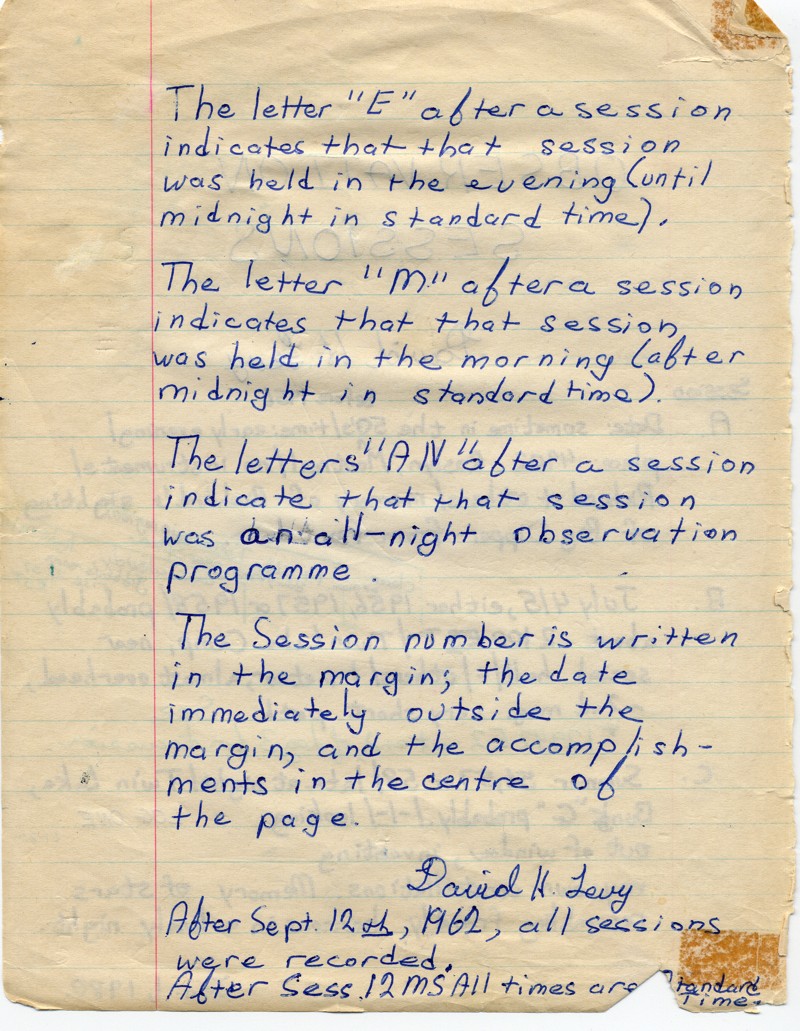 The letter "E" after a session
indicates that that session
was held in the evening (until
midnight in standard time).
The letter "M" after a session
indicates that that session
was held in the morning (after
midnight in standard time).
The letters "AN" after a session
indicate that that session
was an all-night observation
programme.
The Session number is written
in the margin; the date
immediately outside the
margin, and the accomplish-
ments in the centre of
the page.
David H. Levy
After Sept. 12th, 1962, all sessions
were recorded.
After Sess. 12MS All times are Standard
Time.